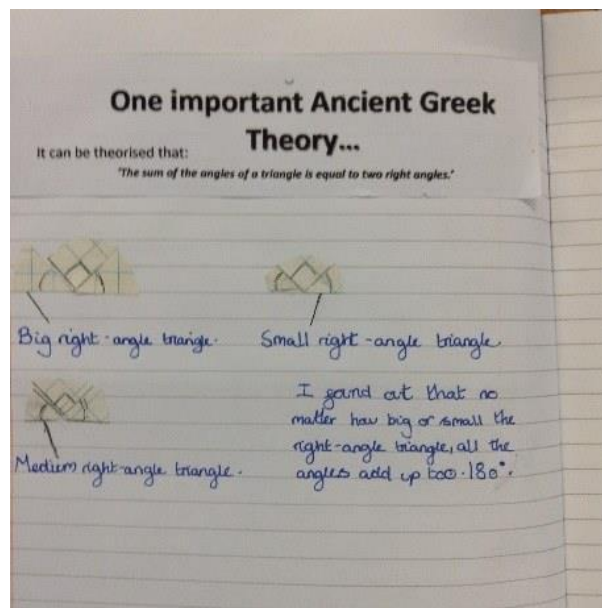 One important Ancient Greek
Theory...
It can be theorised that:
'The sum of the angles of a triangle is equal to two right angles.'
Big right-angle triangle.
Small right-angle triangle.
Medium right-angle triangle.
I gound out that no
matter how big or small the
right-angle triangle, all the
angles add up too 180°.